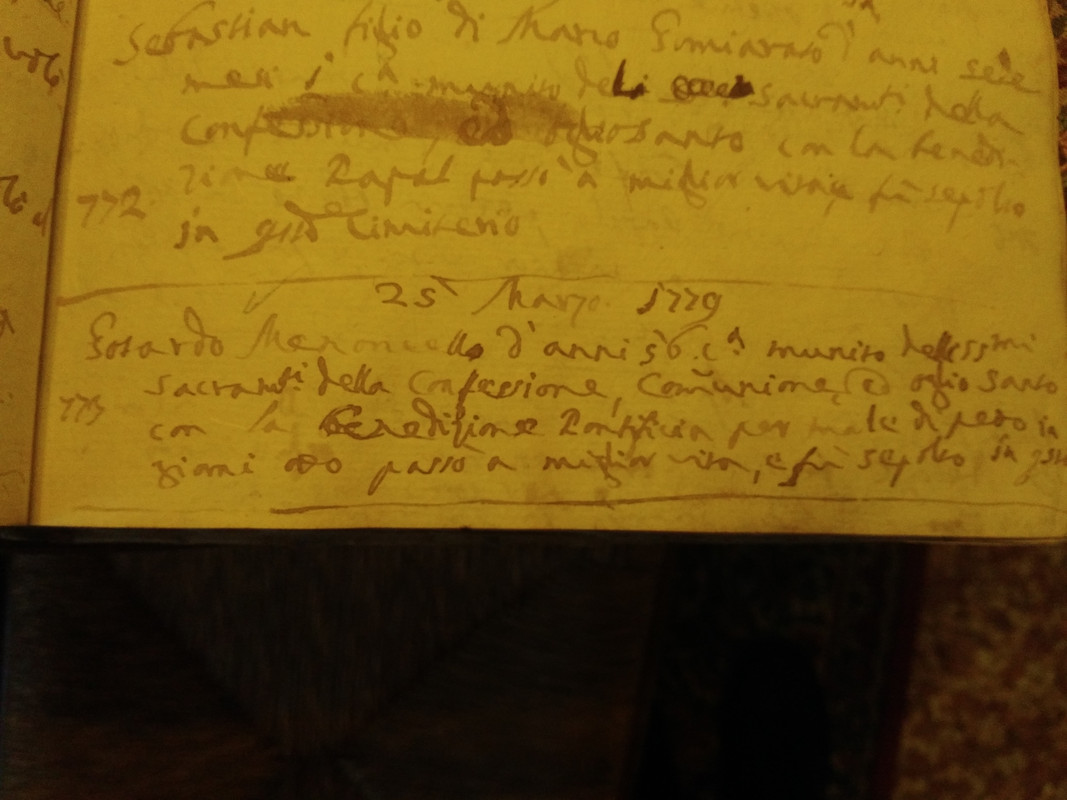 Sebastian figlio di Marco d' anni sete
mesi 1 c.ª munito deli sacramti della
Confessione, ed ogliosanto con la benedi-
zione Papal passò a miglior vita, e fù sepolto
772
in gsto Cimiterio
25 Marzo 1779
Gotardo Menoncello d'anni 56 c.ª munito dellissmi
sacramti della Confessione, Comunione, e oglio santo
773
con la Benedizione Pontificia per male di peto in
giorni oto passò a miglior vita, e fù sepolto in gsto